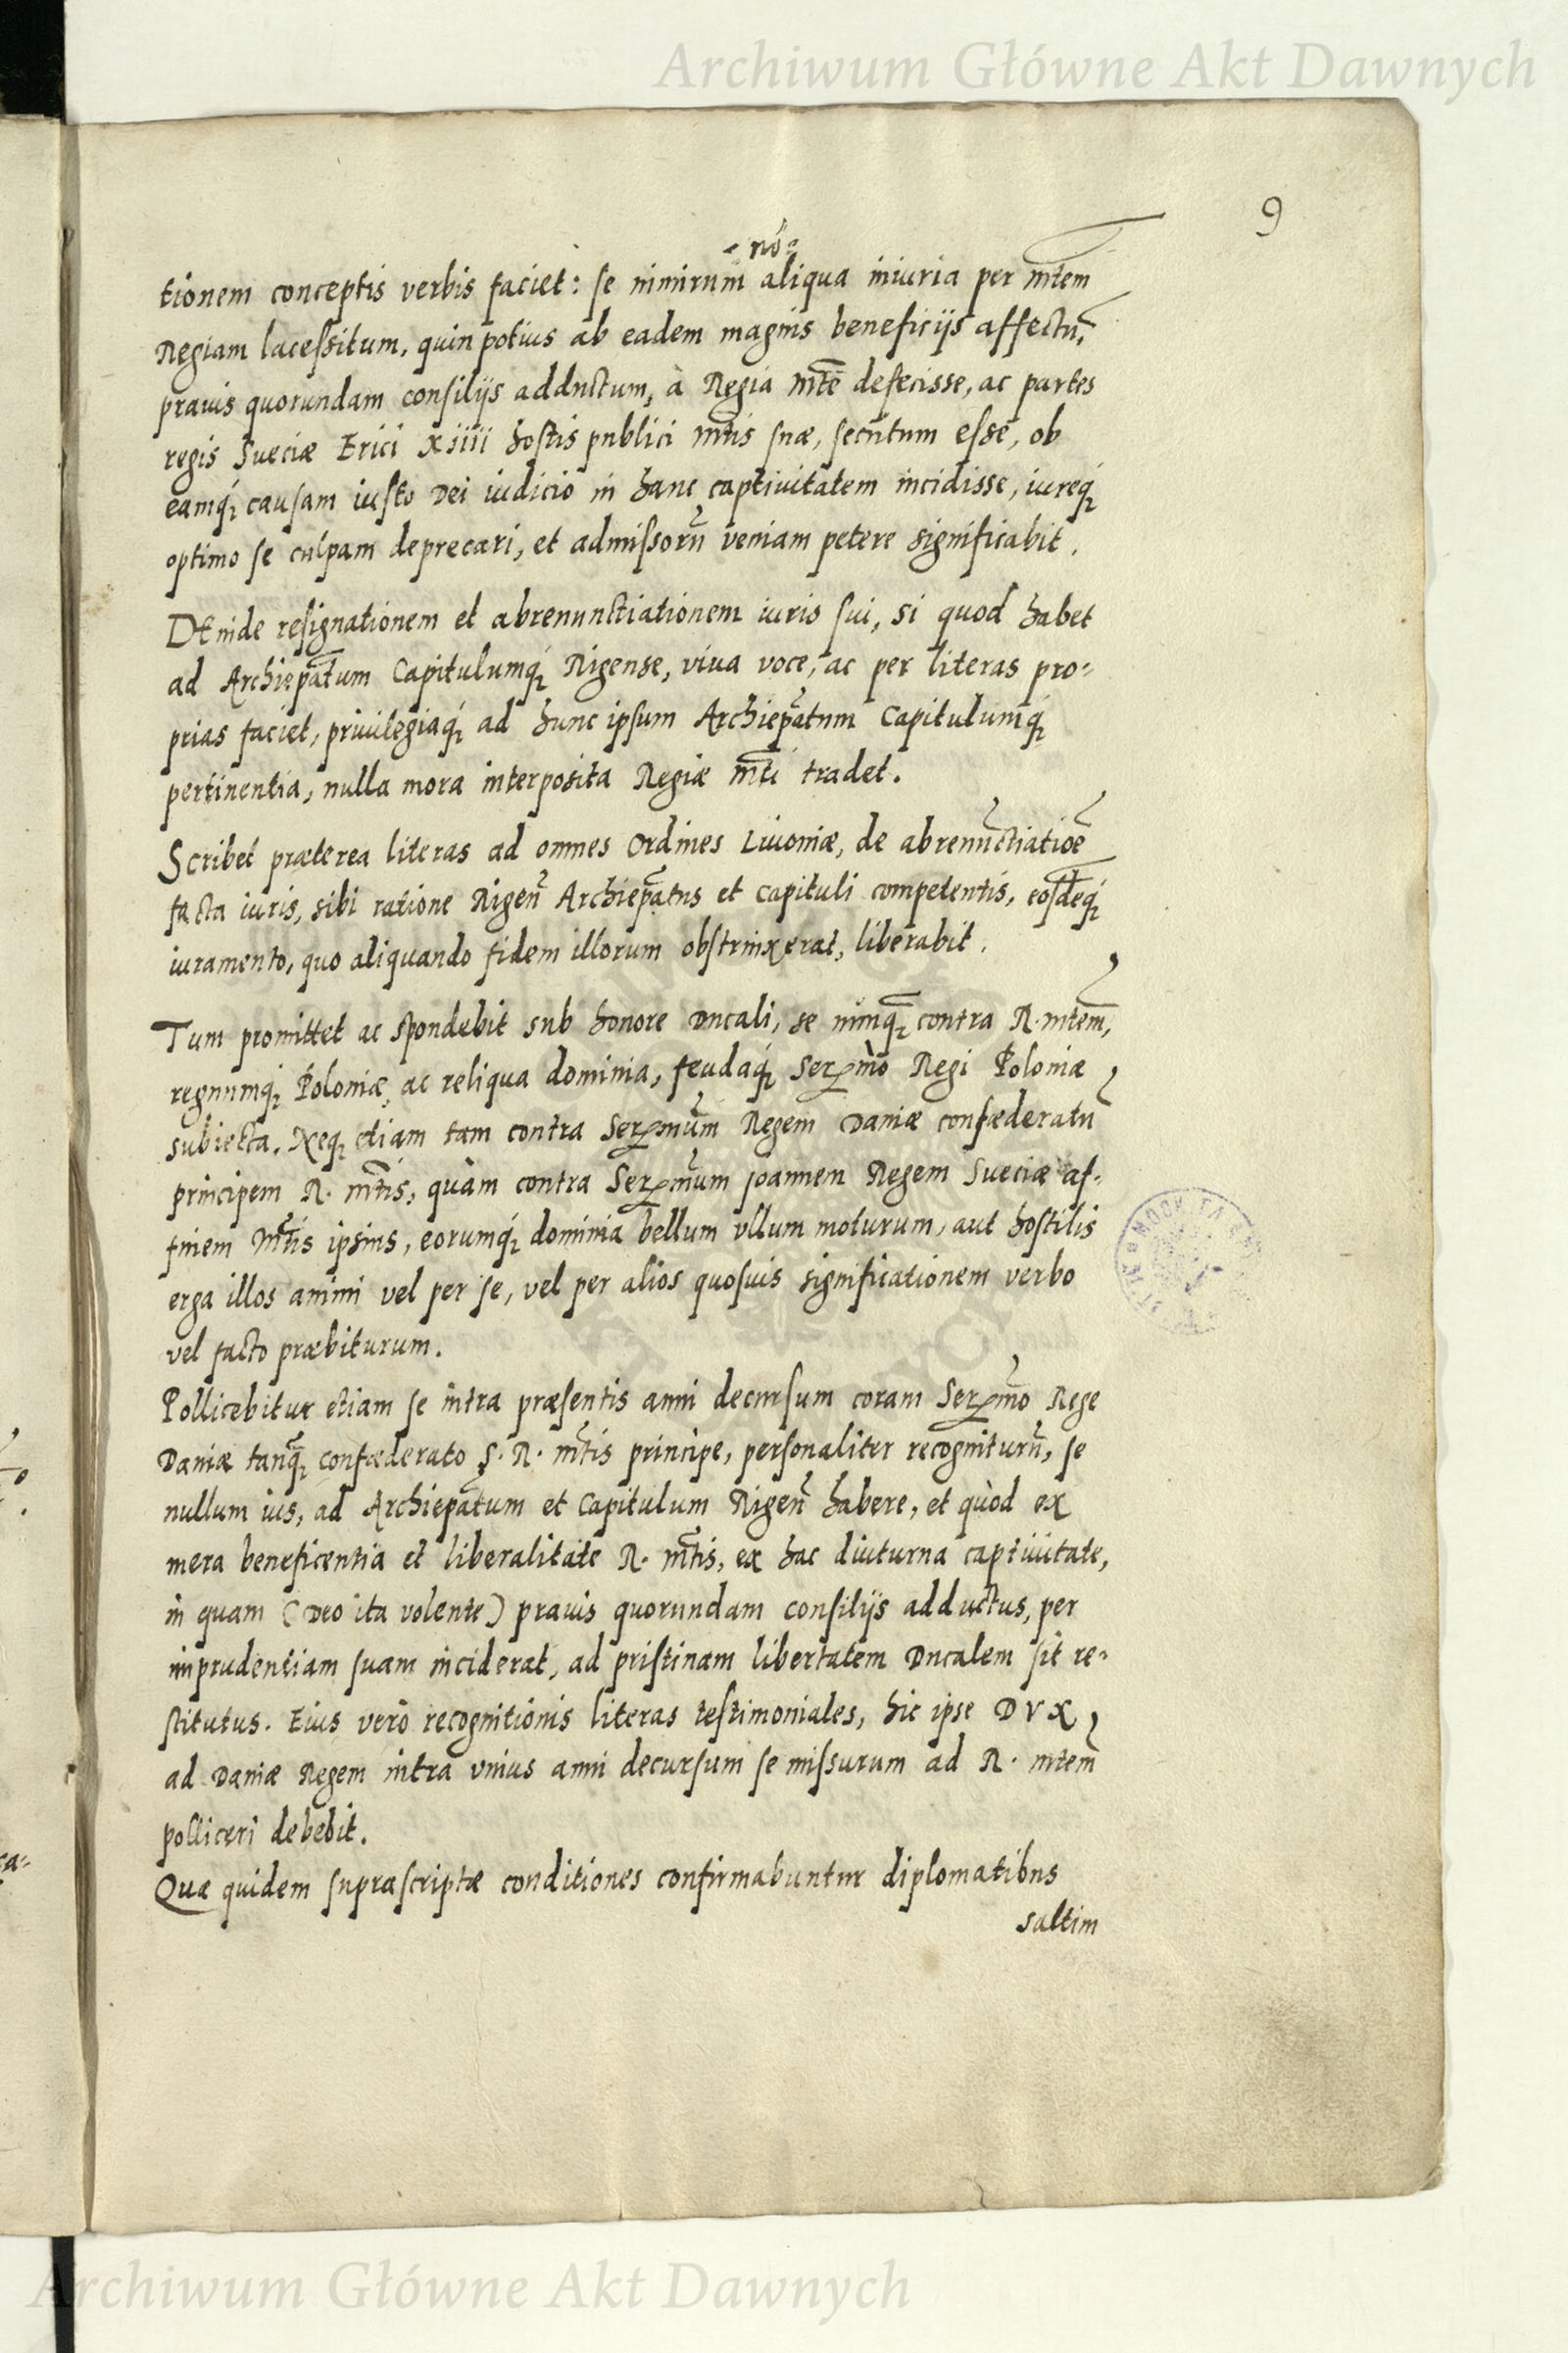 Archiwum Główne Akt Dawnych
9
nō
tionem conceptis verbis faciet: se nimirum aliqua iniuria per mtem
Regiam lacessitum, quin potius ab eadem magnis beneficijs affectū,
prauis quorundam consilijs adductum, à Regia mte defecisse, ac partes
regis Sueciæ Erici xiiii hostis publici mtis suæ, secutum esse, ob
eamq́; causam iusto Dei iudicio in hanc captiuitatem incidisse, iureq́;
optimo se culpam deprecari, et admissorū veniam petere significabit.
DEinde resignationem et abrenunctiationem iuris sui, si quod habet
ad Archiepātum Capitulumq́; Rigense, viua voce, ac per literas pro-
prias faciet, priuilegiaq́; ad hunc ipsum Archiepātum Capitulumq́;
pertinentia, nulla mora interposita Regiæ mti tradet.
Scribet præterea literas ad omnes Ordines Liuoniæ, de abrenūctiatiōe
facta iuris, sibi ratione Rigeñ Archiepātus et capituli competentis, eosdeq́;
iuramento, quo aliquando fidem illorum obstrinxerat, liberabit.
Tum promittet ac spondebit sub honore Ducali, se nunq̄; contra R. mtem,
regnumq́; Poloniæ, ac reliqua dominia, feudaq́; Sermo Regi Poloniæ
subiecta. Neq; etiam tam contra Sermum Regem Daniæ confæderatū
principem R. mtis, quàm contra Sermum Joannem Regem Sueciæ af-
finem Mtis ipsius, eorumq́; dominia bellum vllum moturum, aut hostilis
erga illos animi vel per se, vel per alios quosuis significationem verbo
vel facto præbiturum.
Pollicebitur etiam se intra præsentis anni decursum coram Sermo Rege
Daniæ tanq̄; confæderato S. R. mtis principe, personaliter recogniturū, se
nullum ius, ad Archiepātum et Capitulum Rigeñ habere, et quòd ex
mera beneficentia et liberalitate R. mtis, ex hac diuturna captiuitate,
in quam (Deo ita volente) prauis quorundam consilijs adductus, per
imprudentiam suam inciderat, ad pristinam libertatem Ducalem sit re-
stitutus. Eius verò recognitionis literas testimoniales, hic ipse DVX
ad Daniæ Regem intra vnius anni decursum se missurum ad R. mtem
polliceri debebit.
Quæ quidem suprascriptæ conditiones confirmabuntur diplomatibus
saltim
Archiwum Główne Akt Dawnych